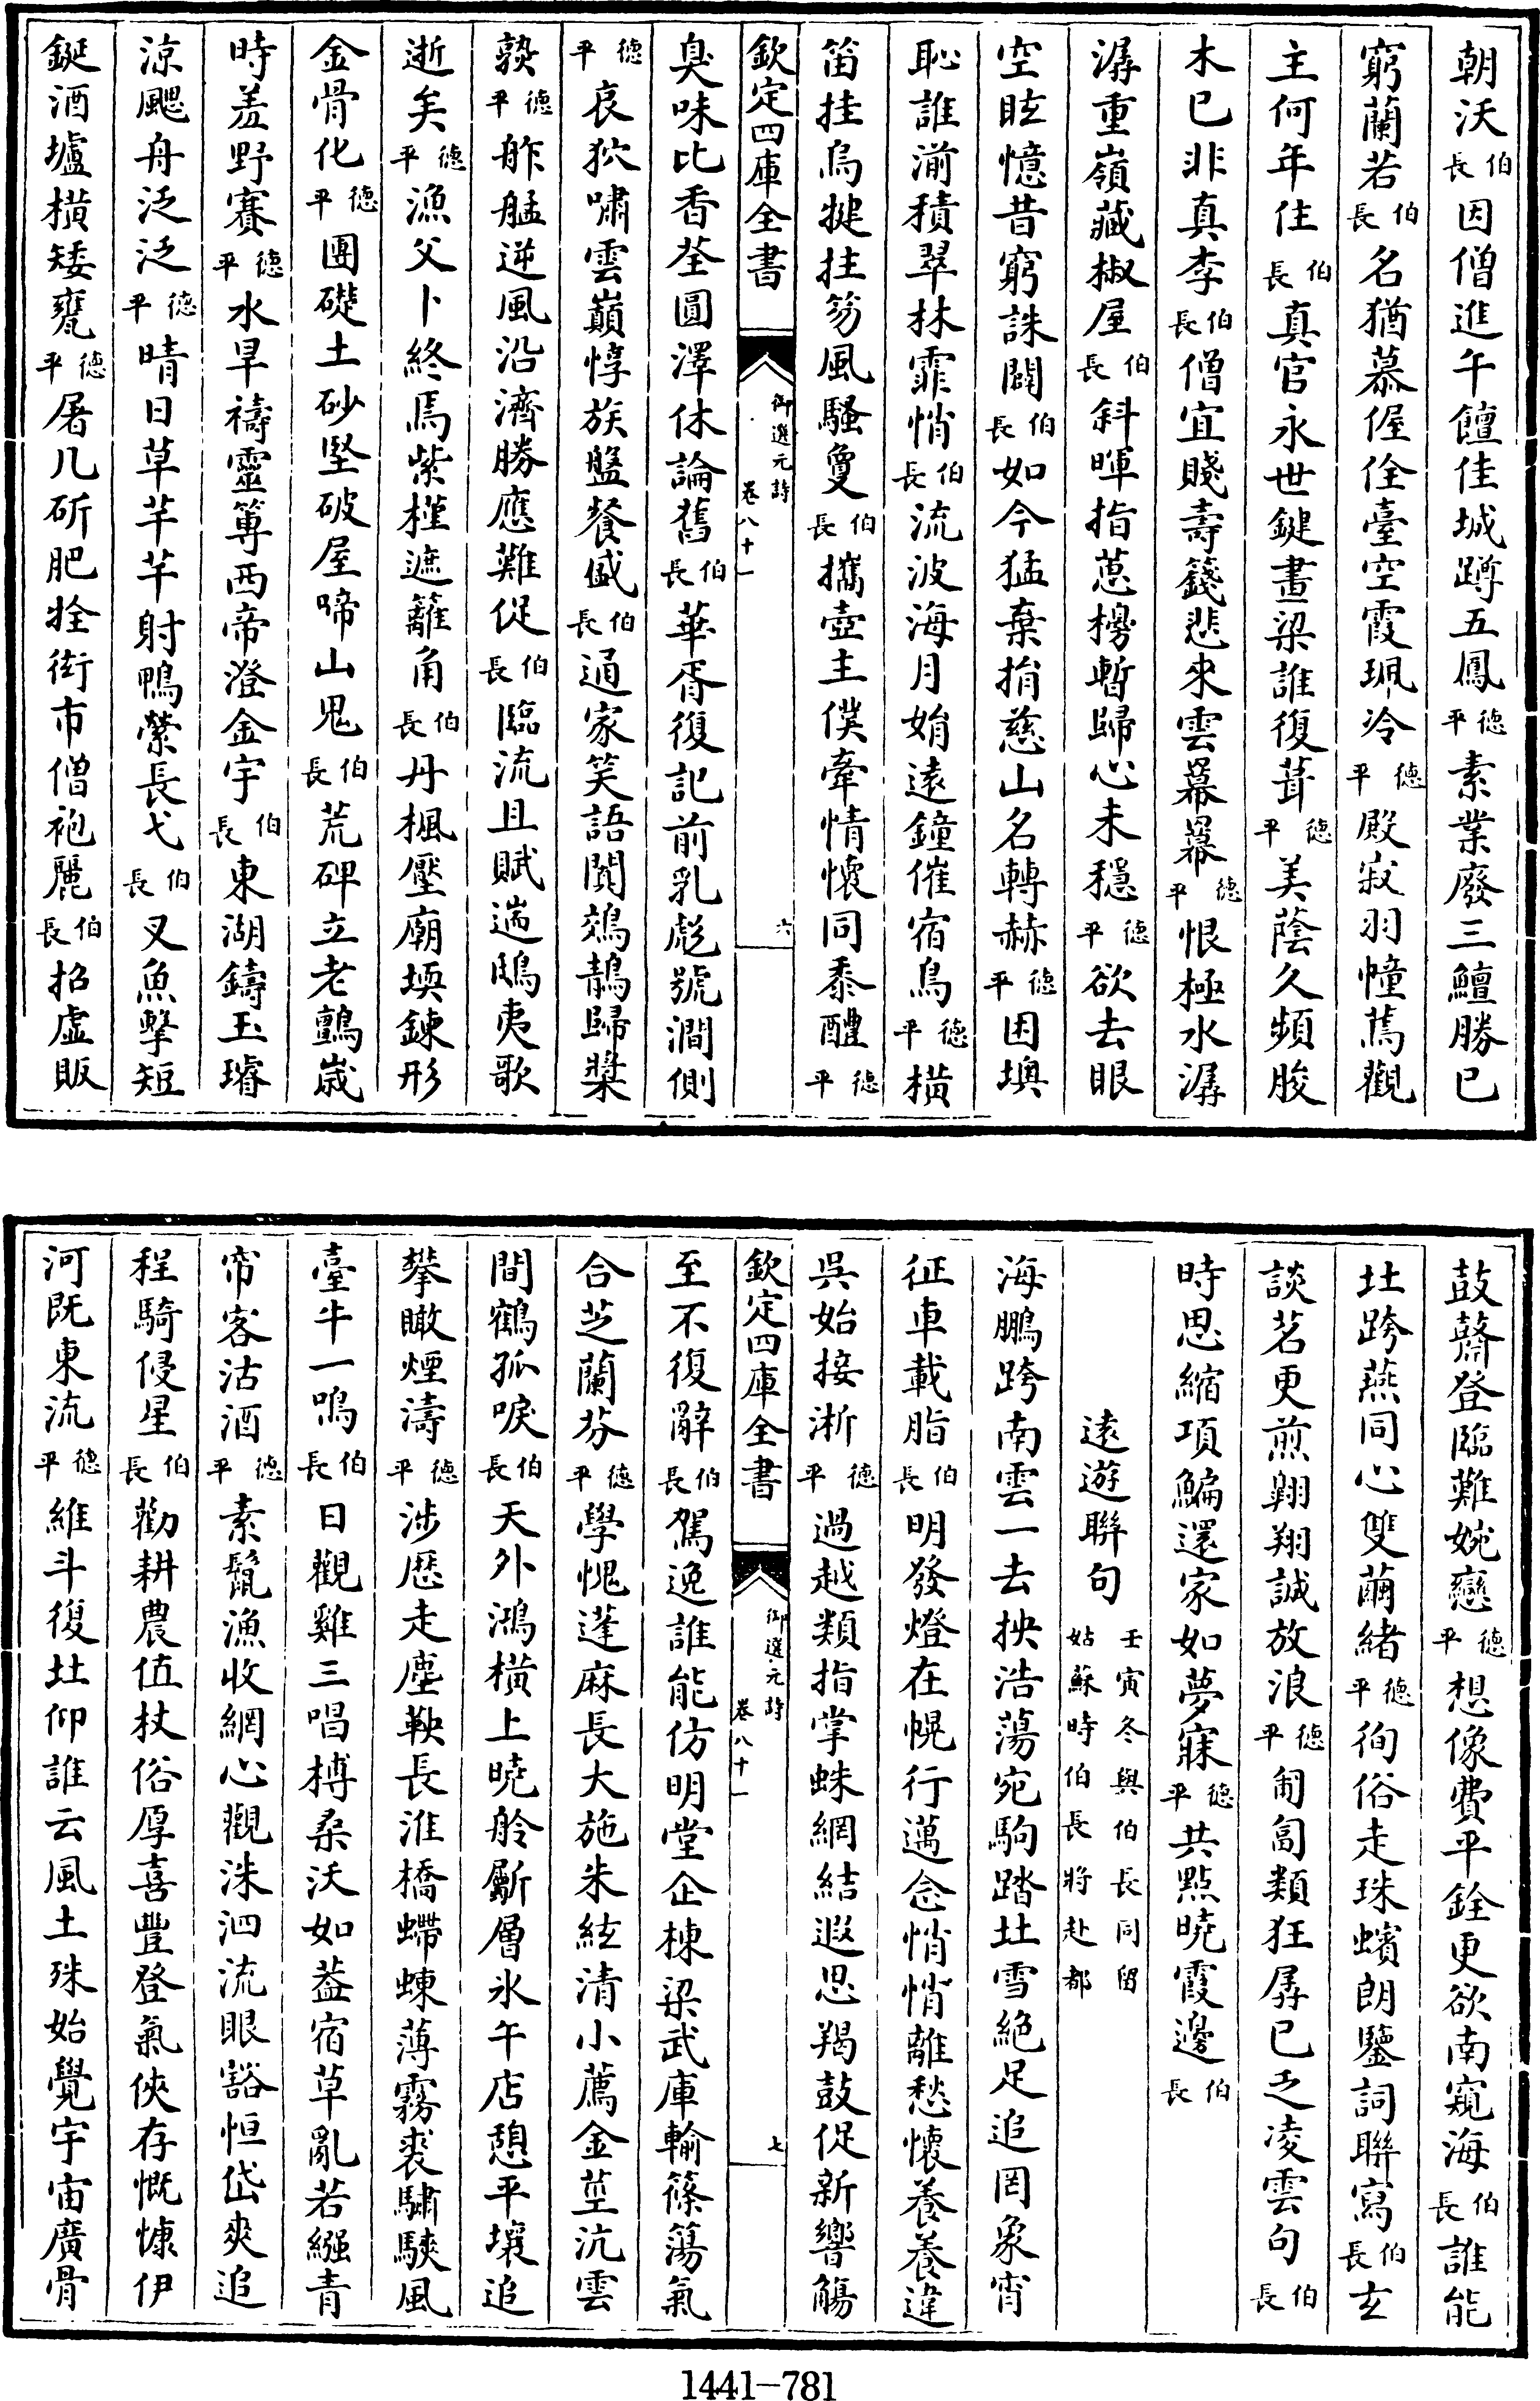 朝沃伯長因僧進午饘佳城蹲五鳳德平素業廢三鱣勝已
窮蘭若伯長名猶慕偓佺臺空霞珮冷德平殿寂羽幢蔫觀
主何年住伯長真官永世鍵畫梁誰復葺德平美蔭久頻朘
木已非真李伯長僧宜賤壽籛悲來雲羃羃德平恨極水潺
潺重嶺藏椒屋伯長斜暉指蒠櫋暫歸心未穩德平欲去眼
空眩憶昔窮誅闢伯長如今猛棄捐慈山名轉赫德平困墺
恥誰湔積翠林霏悄伯長流波海月娟遠鐘催宿鳥德平橫
笛挂烏犍拄笏風騷夐伯長攜壺主僕牽情懷同黍醴德平
欽定四庫全書 御選元詩 卷八十一 六
臭味比香荃圓澤休論舊伯長華胥復記前乳彪號澗側
德平哀狖嘯雲巔惇族盤餐盛伯長通家笑語闐鵁鶄歸槳
孰德平舴艋逆風沿濟勝應難促伯長臨流且賦遄鴟夷歌
逝矣德平漁父卜終焉紫槿遮籬角伯長丹楓壓廟堧鍊形
金骨化德平團礎土砂堅破屋啼山鬼伯長荒碑立老鸇歲
時羞野賽德平水旱禱靈篿西帝澄金宇伯長東湖鑄玉璿
涼颸舟泛泛德平晴日草芊芊射鴨縈長弋伯長叉魚擊短
鋋酒壚橫矮甕德平屠几斫肥牷街市僧袍麗伯長招虛販
鼓鼛登臨難婉戀德平想像費平銓更欲南窺海伯長誰能
北跨燕同心雙繭緒德平徇俗走珠蠙朗鑒詞聯寫伯長玄
談茗更煎翺翔誠放浪德平匍匐類狂孱已乏凌雲句伯長
時思縮項鯿還家如夢寐德平共點曉霞邊伯長
遠遊聯句壬寅冬與伯長同留姑蘇時伯長將赴都
海鵬跨南雲一去抰浩蕩宛駒踏北雪絕足追罔象宵
征車載脂伯長明發燈在幌行邁念悄悄離愁懷養養違
吳始接淅德平過越類指掌蛛網結遐思羯鼓促新響觴
欽定四庫全書 御選元詩 卷八十一 七
至不復辭伯長駕逸誰能仿明堂企棟梁武庫輸篠簜氣
合芝蘭芬德平學愧蓬麻長大施朱絃清小薦金莖沆雲
間鶴孤唳伯長天外鴻橫上曉舲斸層氷午店憩平壤追
攀瞰煙濤德平涉歷走塵鞅長淮橋螮蝀薄霧裘驌騻風
臺牛一鳴伯長日觀雞三唱榑桑沃如葢宿草亂若繈青
帘客沽酒德平素鬛漁收網心觀洙泗流眼豁恒岱爽追
程騎侵星伯長勸耕農值杖俗厚喜豐登氣俠存慨慷伊
河既東流德平維斗復北仰誰云風土殊始覺宇宙廣骨
1441—781